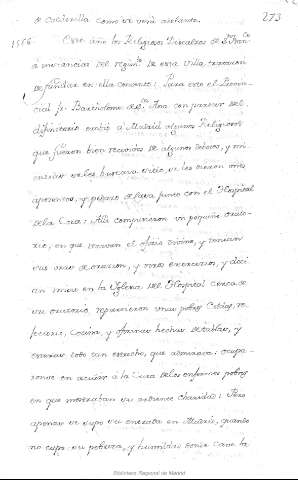 273
de Castilla como se verá adelante.
1586. Este año los Religiosos Descalzos de S. Franco
á instancias del regimto de esta villa, trataron
de fundar en ella convento: Para esto el Provin-
cial fr. Bartholome de Sta Ana con parecer del
difinitorio embió á Madrid algunos Religiosos
que fueron bien recividos de algunos devotos, y mi-
entras se les buscava sitio, se les dieron unos
aposentos, y pedazo de casa junto con el Hospital
de la Corte: Alli compusieron un pequeño orato-
rio, en que rezavan el oficio divino, y tenian
sus oras de oracion, y otros exercicios, y deci-
an misa en la Iglesia del Hospital cerca de
su oratorio, repartieron unas pobres Celdas, re-
fectorio, Cocina, y oficinas hechas de tablas, y
esteras todo tan estrecho, que admirava: ocupa-
ronse en acudir á la Cura de los enfermos pobres
en que mostraban su ardiente charidad: Pero
apenas se supo su entrada en Madrid, quando
no cupo su pobreza, y humildad
Biblioteca Regional de Madrid